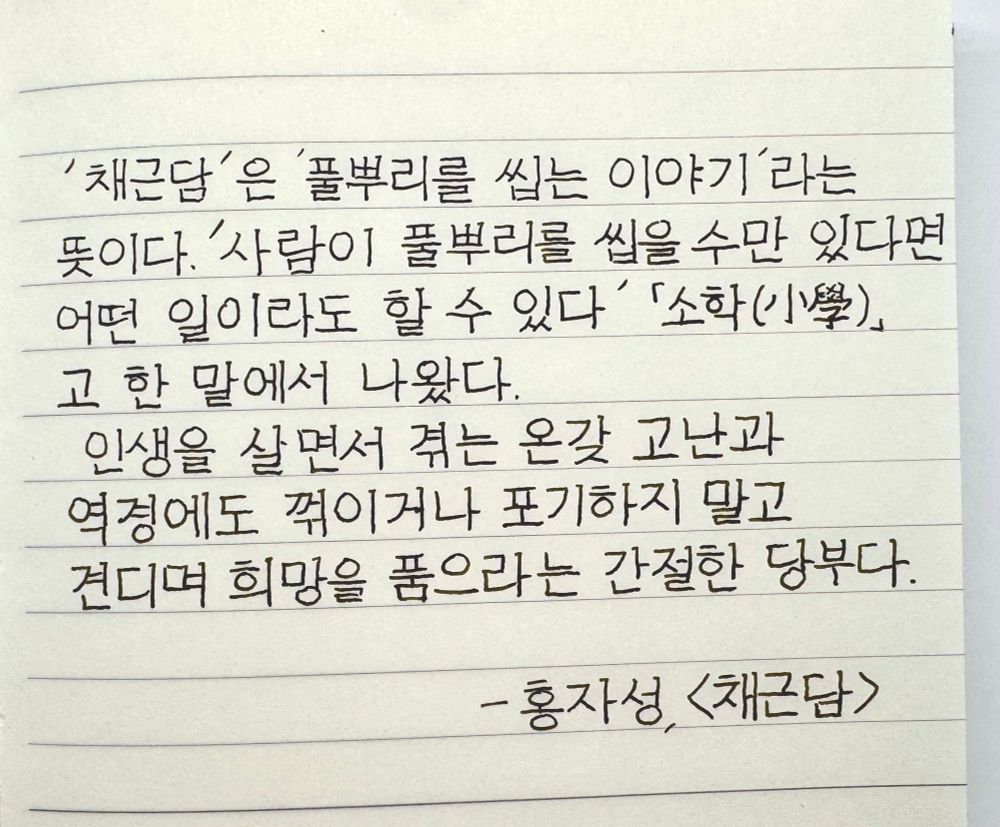 '채근담'은 '풀뿌리를 씹는 이야기'라는
뜻이다. '사람이 풀뿌리를 씹을 수만 있다면
어떤 일이라도 할 수 있다' 「소학(小學)」
고 한 말에서 나왔다.
인생을 살면서 겪는 온갖 고난과
역경에도 꺾이거나 포기하지 말고
견디며 희망을 품으라는 간절한 당부다.
- 홍자성, <채근담>